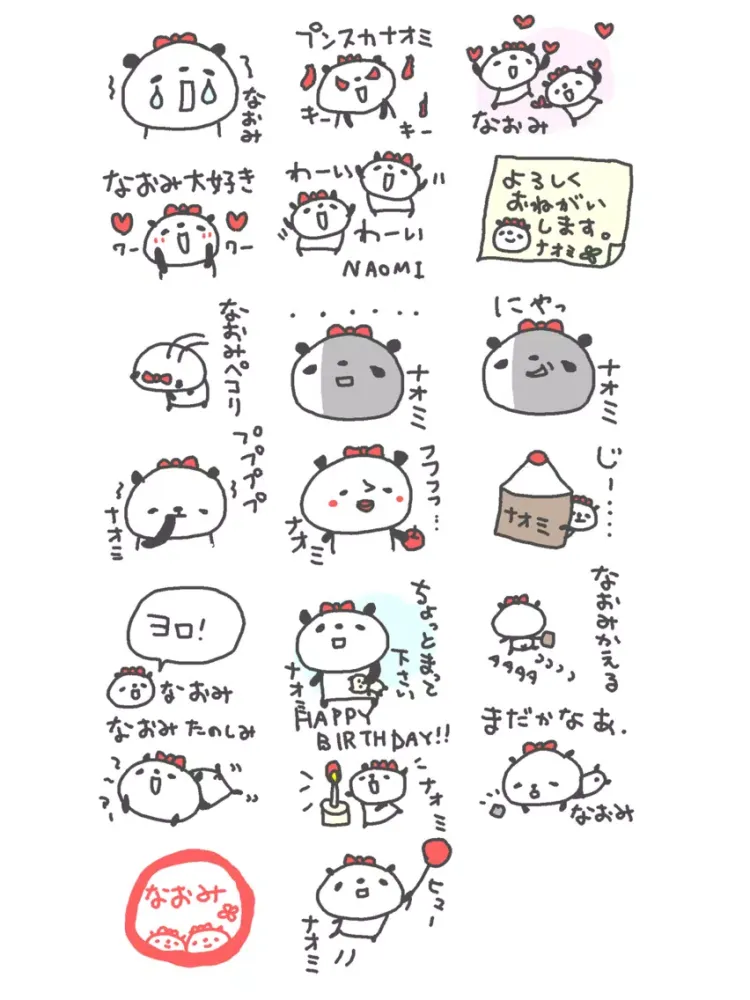 なおみ
プンスカナオミ
キー
キー
なおみ
なおみ大好き
ワー
ワー
わーい
わーい
NAOMI
よろしく
おねがい
します。
ナオミ
なおみペコリ
・・・・・・
ナオミ
にやっ
ナオミ
プププププ
ナオミ
フフフッ…
ナオミ
じー……
ナオミ
ヨロ!
なおみ
ちょっとまって
下さい
ナオミ
なおみかえる
タタタタ
なおみたのしみ
HAPPY
BIRTHDAY!!
ナオミ
まだかなあ.
なおみ
なおみ
ヒュー
ナオミ